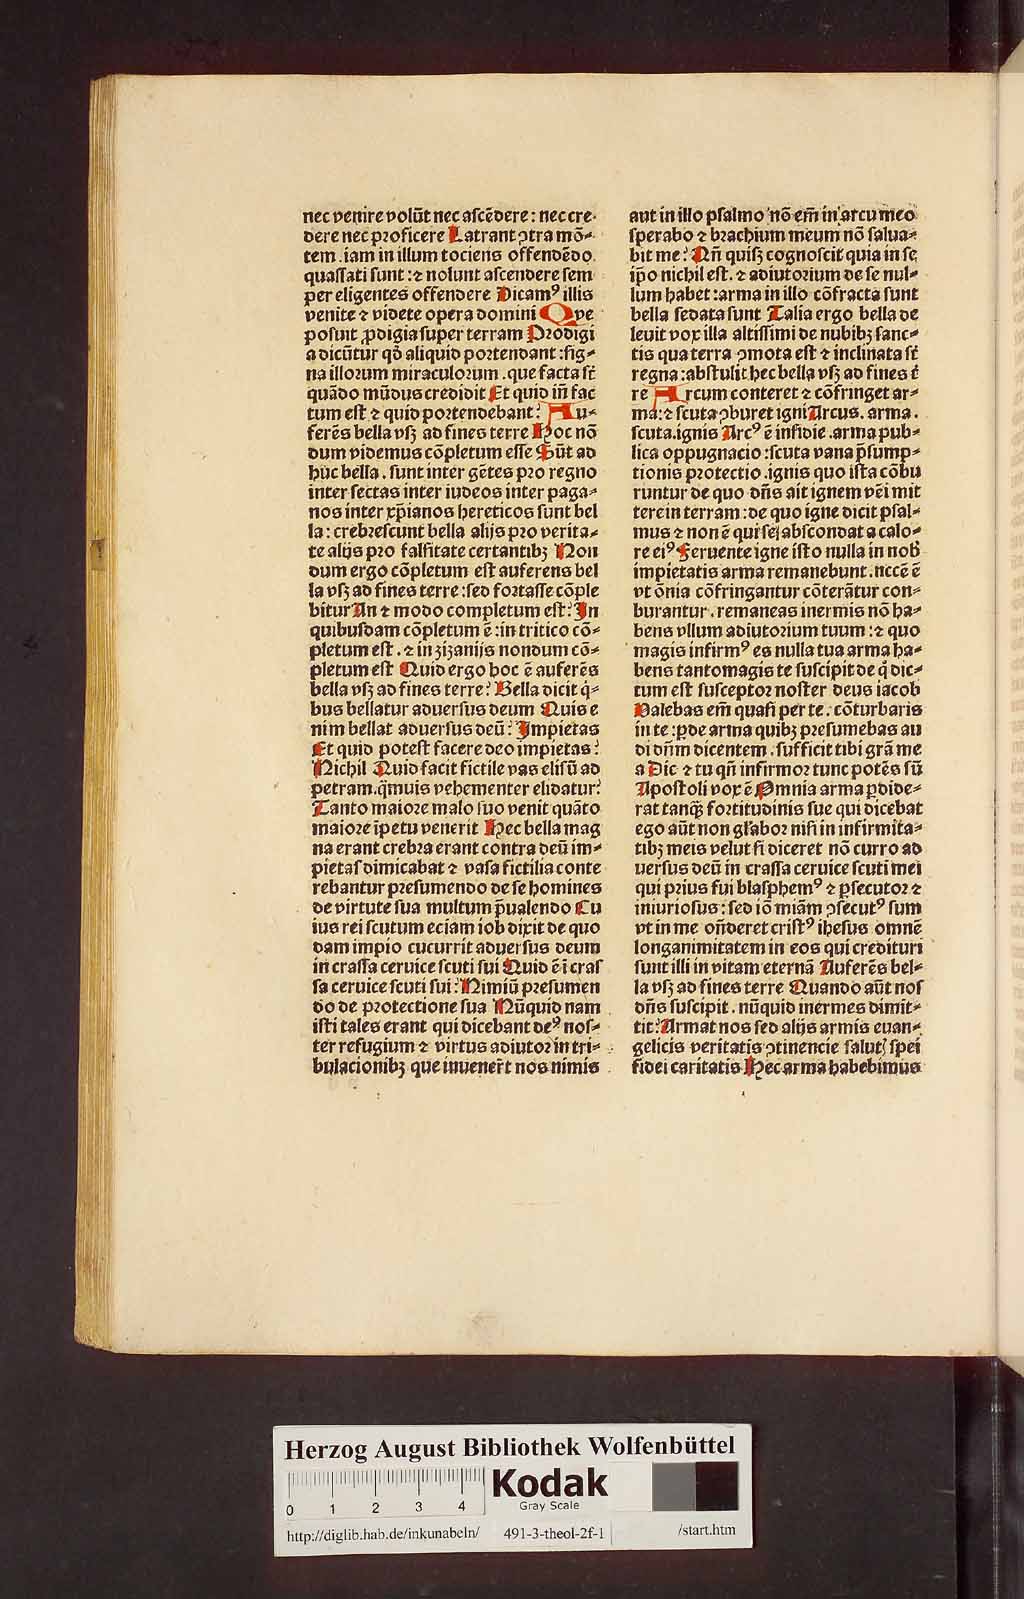 nec venire volūt nec ascēdere: nec cre-
dere nec proficere Latrant ꝯtra mō-
tem. iam in illum tociens offendēdo
quassati sunt: ⁊ nolunt ascendere sem
per eligentes offendere Dicamꝰ illis
venite ⁊ videte opera domini Que
posuit ꝓdigia super terram Prodigi
a dicūtur qd̄ aliquid portendant: sig-
na illorum miraculorum. que facta sr̄t
quādo mūdus credidit Et quid in̄ fac
tum est ⁊ quid portendebant? Au-
ferēs bella vsꝫ ad fines terre Hoc nō
dum videmus cōpletum esse Sūt ad
huc bella. sunt inter gētes pro regno
inter sectas inter iudeos inter paga-
nos inter xp̄ianos hereticos sunt bel
la: crebrescunt bella alijs pro verita-
te alijs pro falsitate certantibꝫ Non
dum ergo cōpletum est auferens bel
la vsꝫ ad fines terre: sed fortasse cōple
bitur An ⁊ modo completum est? In
quibusdam cōpletum ē: in tritico cō-
pletum est. ⁊ in zizanijs nondum cō-
pletum est Quid ergo hoc ē auferēs
bella vsꝫ ad fines terre? Bella dicit q̄-
bus bellatur aduersus deum Quis e
nim bellat aduersus deū? Impietas
Et quid potest facere deo impietas?
Nichil Quid facit fictile vas elisū ad
petram. q̄muis vehementer elidatur?
Tanto maiore malo suo venit quāto
maiore īpetu venerit Hec bella mag
na erant crebra erant contra deū im-
pietas dimicabat ⁊ vasa fictilia conte
rebantur presumendo de se homines
de virtute sua multum p̄ualendo Cu
ius rei scutum eciam iob dixit de quo
dam impio cucurrit aduersus deum
in crassa ceruice scuti sui Quid ē ī cras
sa ceruice scuti sui? Nimiū presumen
do de protectione sua Nūquid nam
isti tales erant qui dicebant deꝰ nos-
ter refugium ⁊ virtus adiutor in tri-
bulacionibꝫ que inuener̄t nos nimis
aut in illo psalmo nō em̄ in arcu meo
sperabo ⁊ brachium meum nō salua-
bit me? Qn̄ quisꝫ cognoscit quia in se
ip̄o nichil est. ⁊ adiutorium de se nul-
lum habet: arma in illo cōfracta sunt
bella sedata sunt Talia ergo bella de
leuit vox illa altissimi de nubibꝫ sanc-
tis qua terra ꝯmota est ⁊ inclinata sr̄t
regna: abstulit hec bella vsꝫ ad fines t̄
re Arcum conteret ⁊ cōfringet ar-
ma: ⁊ scuta ꝯburet igni Arcus. arma.
scuta. ignis Arcꝰ ē insidie. arma pub-
lica oppugnacio: scuta vana p̄sump-
tionis protectio. ignis quo ista cōbu
runtur de quo dn̄s ait ignem vēi mit
tere in terram: de quo igne dicit psal-
mus ⁊ non ē qui se abscondat a calo-
re eiꝰ Feruente igne isto nulla in nob̄
impietatis arma remanebunt. nccē ē
vt ōnia cōfringantur cōterātur con-
burantur. remaneas inermis nō ha-
bens vllum adiutorium tuum: ⁊ quo
magis infirmꝰ es nulla tua arma ha-
bens tantomagis te suscipit de q̄ dic-
tum est susceptor noster deus iacob
Valebas em̄ quasi per te. cōturbaris
in te: ꝑde arma quibꝫ presumebas au
di dn̄m dicentem. sufficit tibi grā me
a Dic ⁊ tu qn̄ infirmor tunc potēs sū
Apostoli vox ē Omnia arma ꝑdide-
rat tanqꝫ fortitudinis sue qui dicebat
ego aūt non gl̄abor nisi in infirmita-
tibꝫ meis velut si diceret nō curro ad
uersus deū in crassa ceruice scuti mei
qui prius fui blasphemꝰ ⁊ ꝑsecutor ⁊
iniuriosus: sed iō miām ꝯsecutꝰ sum
vt in me on̄deret cristꝰ ihesus omnē
longanimitatem in eos qui credituri
sunt illi in vitam eternā Auferēs bel-
la vsꝫ ad fines terre Quando aūt nos
dn̄s suscipit. nūquid inermes dimit-
tit? Armat nos sed alijs armis euan-
gelicis veritatis ꝯtinencie salutꝭ spei
fidei caritatis Hec arma habebimus
Herzog August Bibliothek Wolfenbüttel
0 1 2 3 4
Kodak
Gray Scale
http://diglib.hab.de/inkunabeln/ 491-3-theol-2f-1 /start.htm